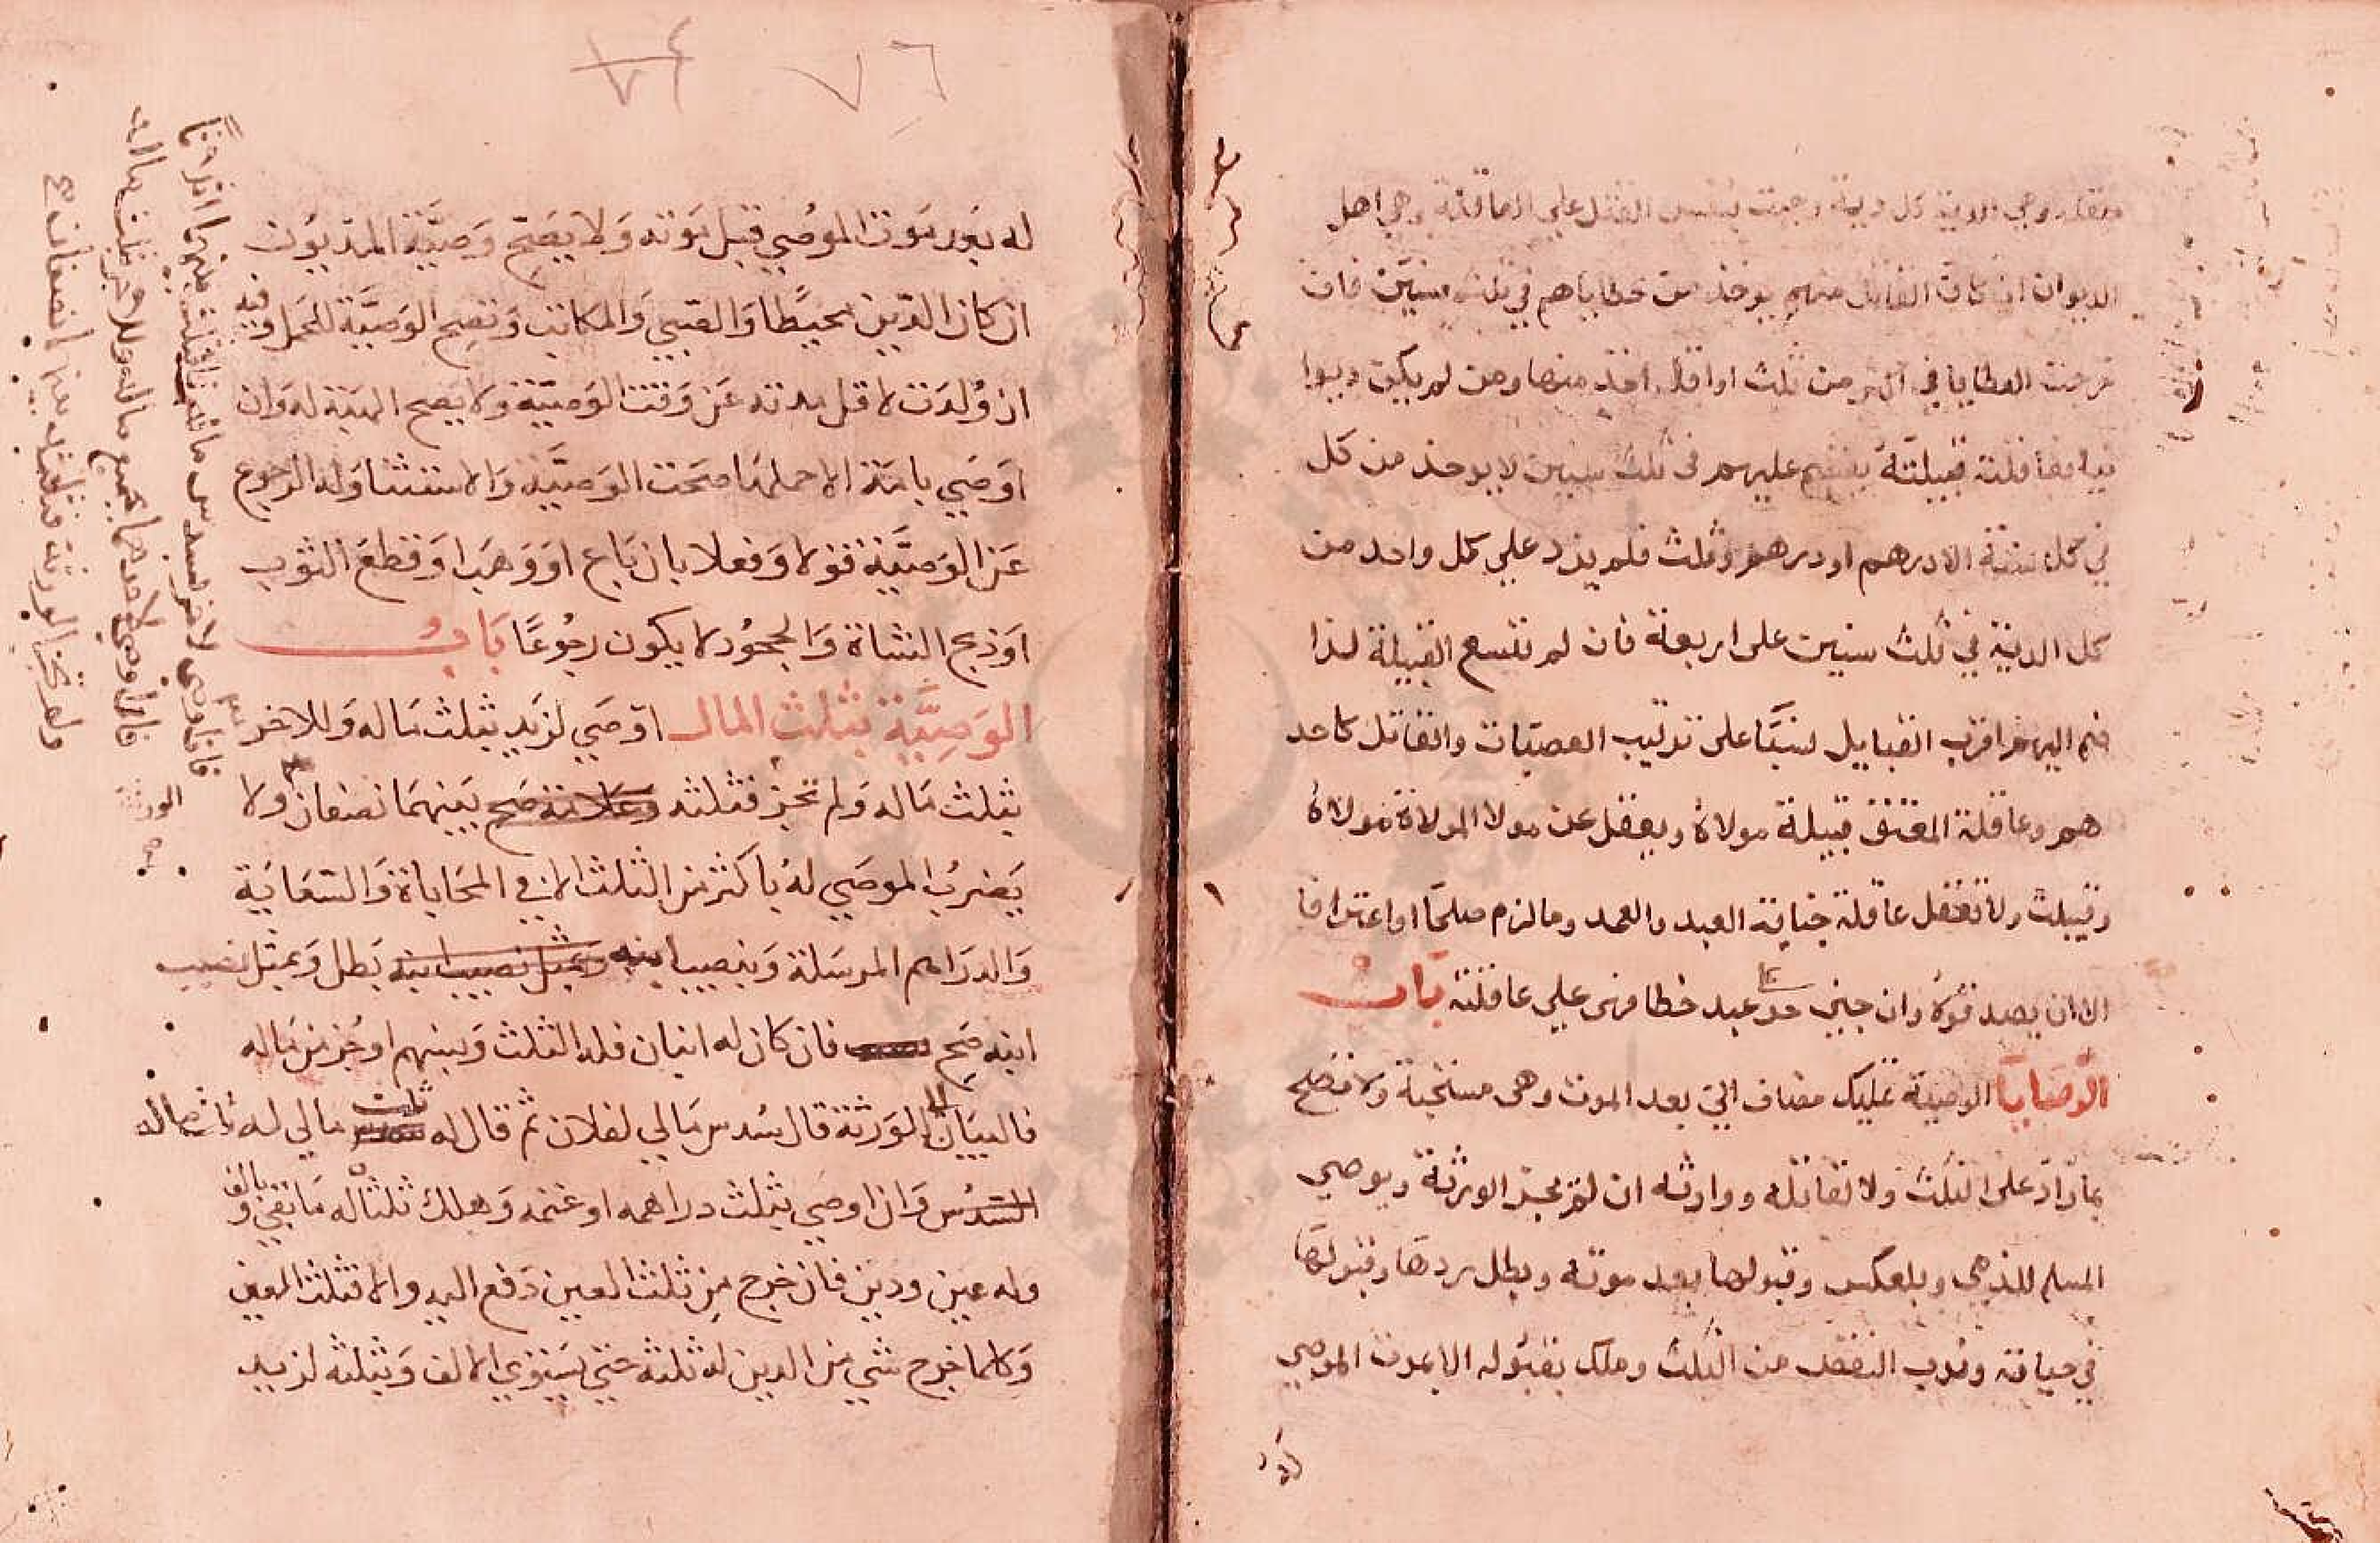 معقلة وهي الدية كل دية وجبت بنفس القتل على العاقلة وهي اهل
الديوان ان كان القاتل منهم يوخذ من عطاياهم في ثلث سنين فان
خرجت العطايا في اكثر من ثلث او اقل اخذ منها ومن لم يكن ديوا
نيا فعاقلته قبيلته يقسم عليهم في ثلث سنين لا يوخذ من كل
في كل سنة الا درهم او درهم وثلث فلم يزد على كل واحد من
كل الدية في ثلث سنين على اربعة فان لم تتسع القبيلة لذا
ضم اليهم اقرب القبايل نسبًا على ترتيب العصبات والقاتل كاحد
هم وعاقلة المعتق قبيلة مولاه ويعقل عن مولا الموالاة مولاه
وقبيلته ولا تعقل عاقلة جناية العبد والعمد وما لزم صلحًا او اعترافا
الا ان يصدقوه وان جنى حر على عبد خطا فهي على عاقلته باب
الوصايا الوصية تمليك مضاف الى بعد الموت وهي مستحبة ولا تصح
بما زاد على الثلث ولا لقاتله ووارثه ان لم يجز الورثة ويوصي
المسلم للذمي وبلعكس وقبولها بعد موته وبطل ردها وقبولها
في حياته وندب النقص من الثلث وملك بقبوله الا بموت الموصي
له
٧٦
٧٤
له بعد موت الموصي قبل موته ولا يصح وصية المديون
ان كان الدين محيطا والصبي والمكاتب وتصح الوصية للحمل وبه
ان ولدت لاقل مدته عن وقت الوصية ولا يصح الهبة له وان
اوصي بامة الا حملها صحت الوصية والاستثنا وله الرجوع
عن الوصية قولا وفعلا بان باع او وهب او قطع الثوب
او ذبح الشاة والجحود لا يكون رجوعًا باب
الوصية بثلث المال اوصي لزيد بثلث ماله وللاخر
بثلث ماله ولم تجز فثلثه بينهما نصفان ولا
يضرب الموصي له باكثر من الثلث الا في المحاباة والسعاية
والدراهم المرسلة وبنصيب ابنه بطل وبمثل نصيب
ابنه صح فان كان له ابنان فله الثلث وبسهم او جز من ماله
فالبيان الى الورثة قال سدس مالي لفلان ثم قال له ثلث مالي له ثلث ماله
السدس وان اوصي بثلث دراهمه او غنمه وهلك ثلثاه له ما بقي وبالف
وله عين ودين فان خرج من ثلث العين دفع اليه والا فثلث العين
وكلما خرج شي من الدين له ثلثه حتى يستوفي الالف وبثلثه لزيد
فان اوصى لاخر بسدس ماله فالثلث بينهما اثلاثا
فان اوصى لاحدهما بجميع ماله وللاخر بثلث ماله
ولم تجز الورثة فثلثه بينهما نصفان
الورثة